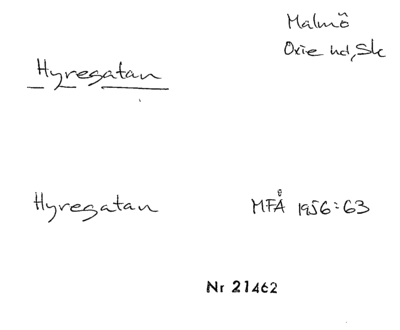 Malmö
Oxie hd, Sk
Hyregatan
Hyregatan MFÅ 1956:63
Nr 21462